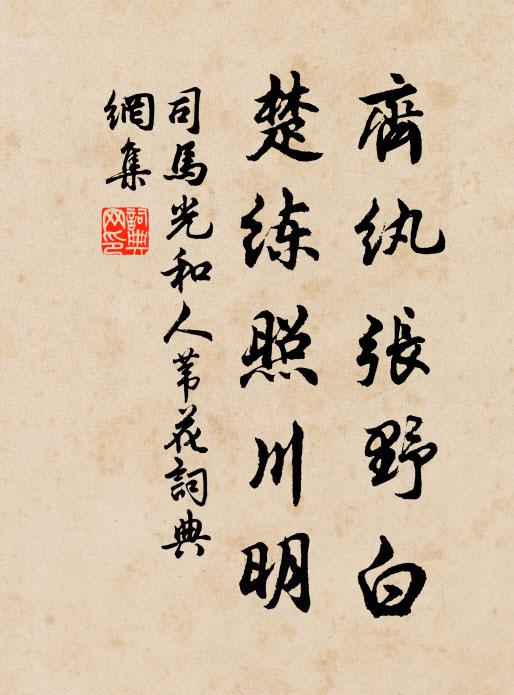 齊紈張野白
楚练照川明
司馬光和人苇花詞典
網集
詞典
网印